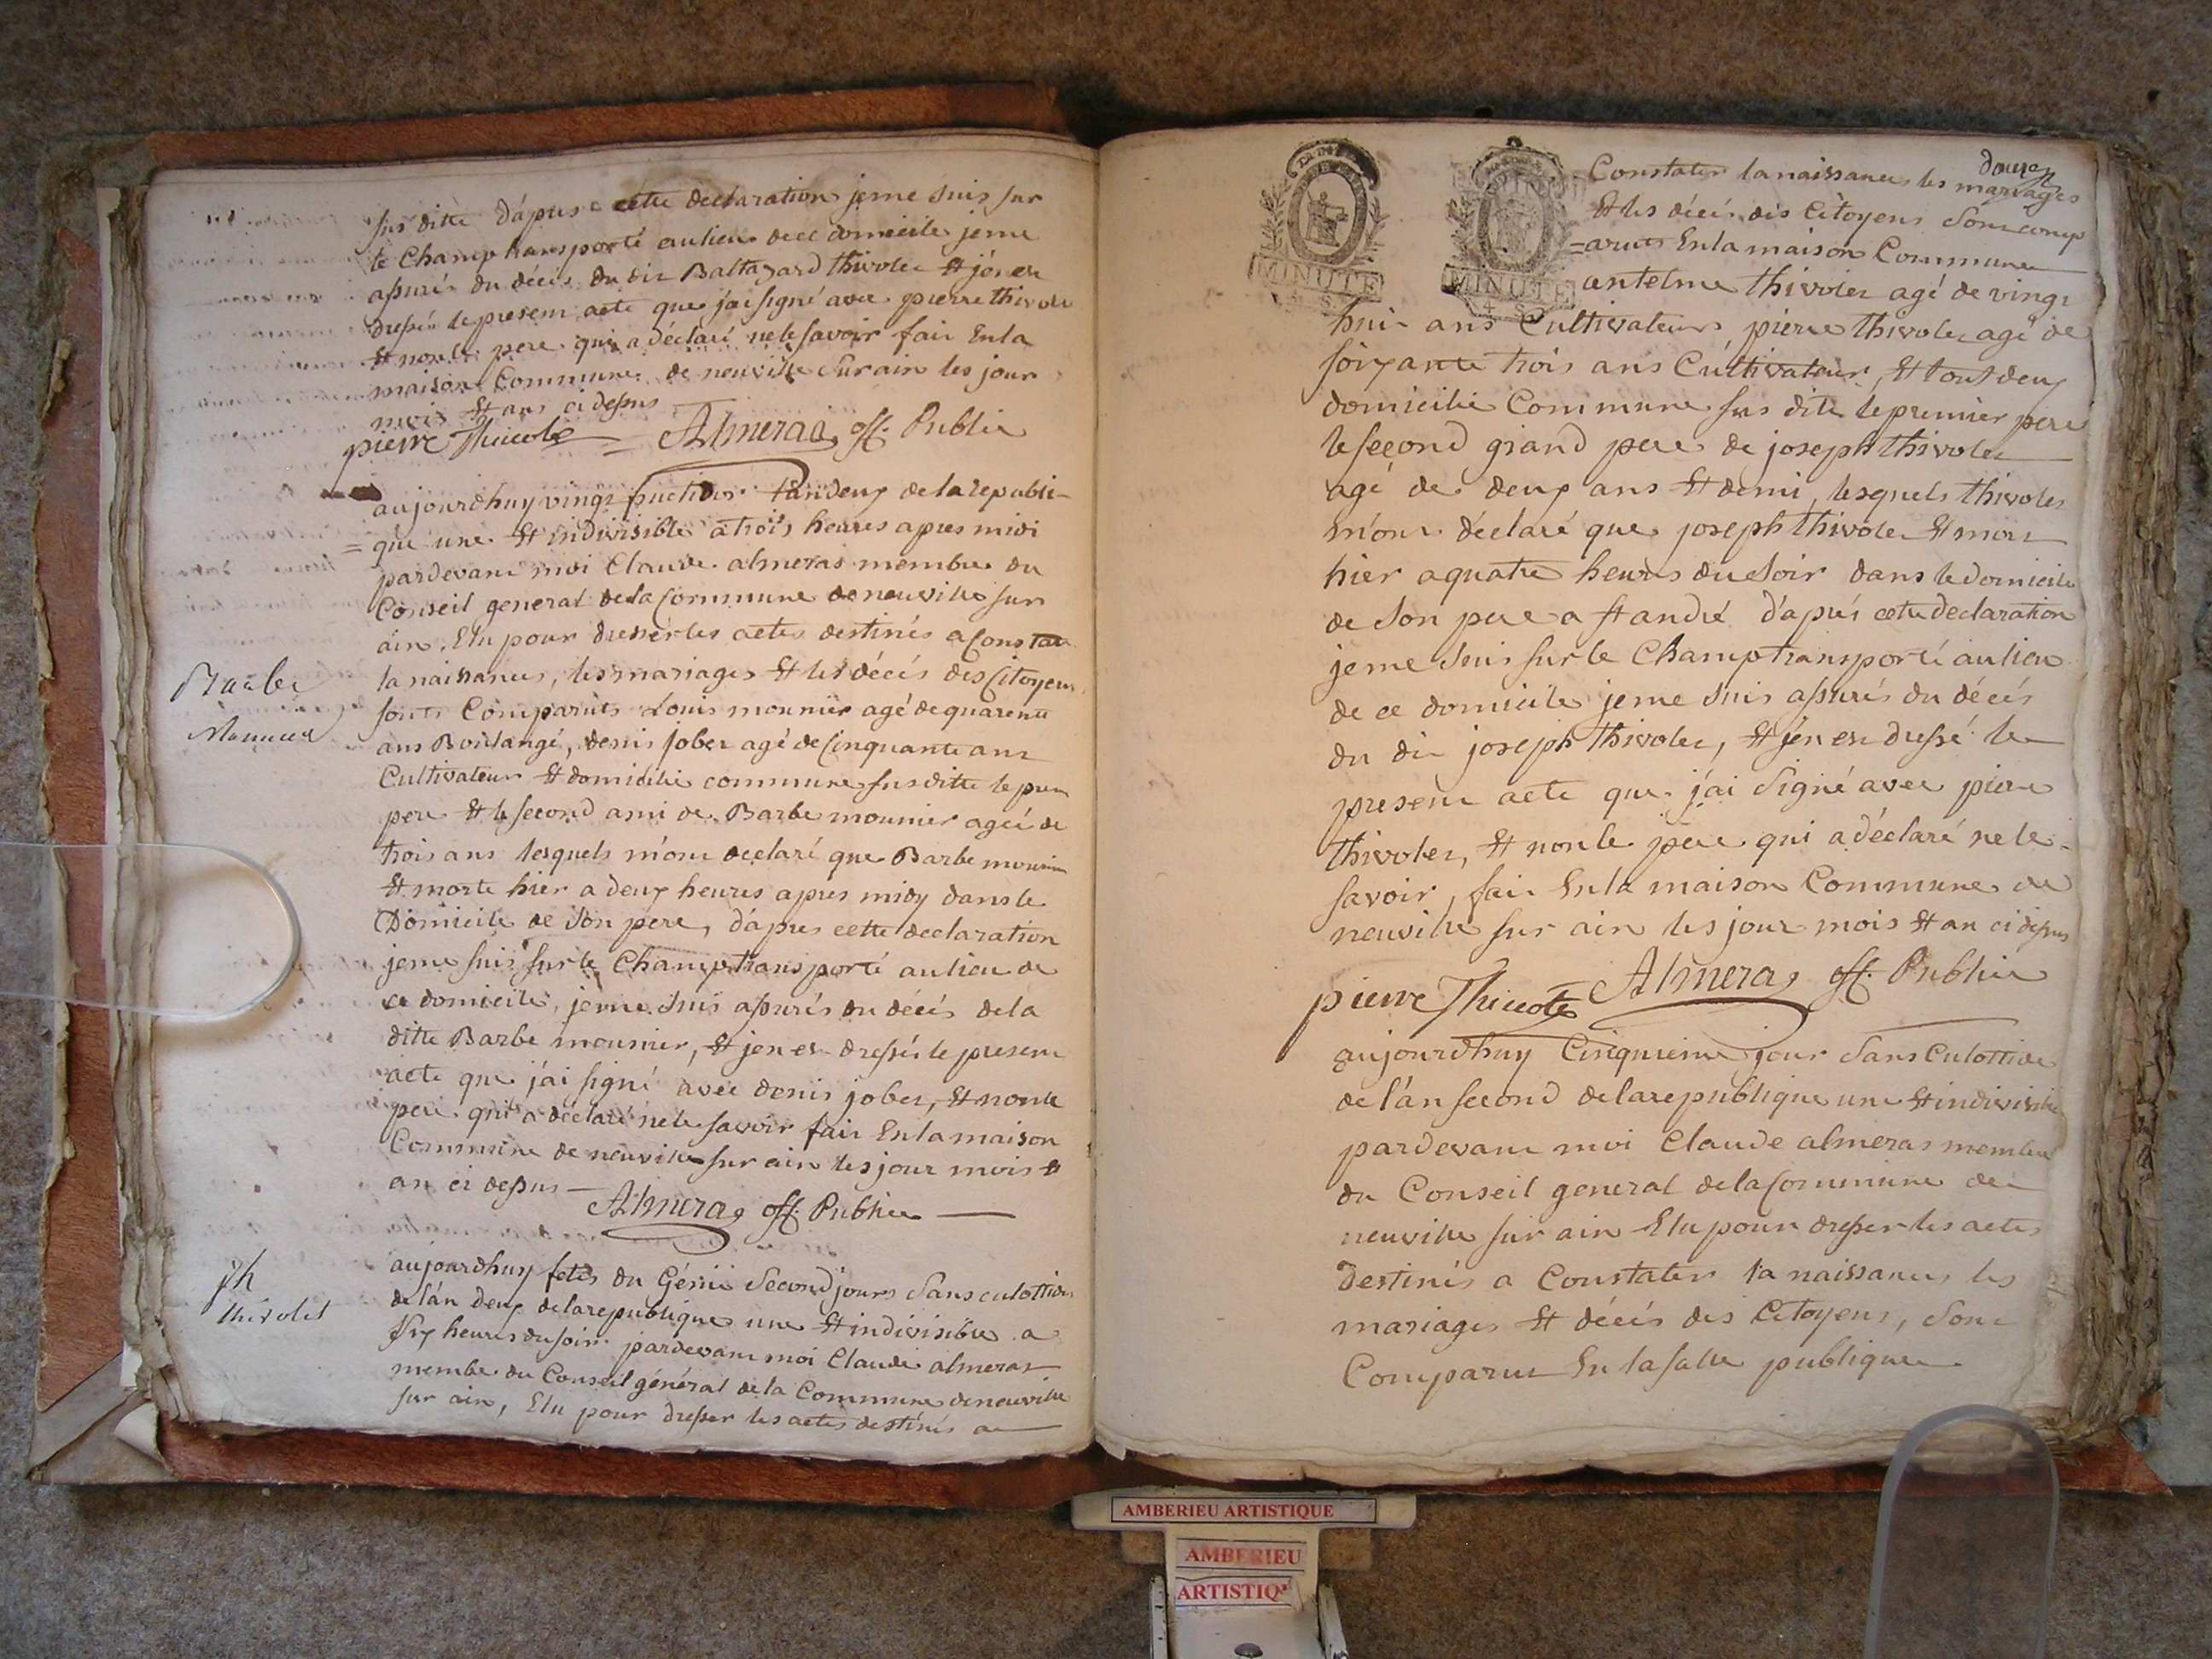 sus ditte d'apres cette declaration je me suis sur
le Champ transporté au lieu de ce domicile je me
assurés du décés du dit Baltazard thivolet et j'en ex
dressée le present acte que j'ai signé avec pierre thivolet
et non le pere qui a déclaré ne le savoir fait En la
maison Commune de neuville sur ain les jour
mois et an ci dessus
pierre Thivolle Almeras off. Public
aujourdhuy vingt fructidor l'an deux de la republi-
= que une et indivisible a trois heures apres midi
pardevant moi Claude almeras membre du
Conseil general de la Commune de neuville sur
ain, Elu pour dresser les actes destinés a Constater
la naissances, les mariages et les décés des Citoyens
sonts Comparuts Louis mounier agé de quarente
ans Boulangé, denis jober agé de Cinquante ans
Cultivateur et domicilié commune sus ditte le prem
pere et le second ami de Barbe mounier ageé de
trois ans lesquels m'ont declaré que Barbe mounier
et morte hier a deux heures apres midy dans le
Domicile de son pere, d'apres cette declaration
je me suis sur le Champ transporté au lieu de
ce domicile, je me suis assurés du décés de la
ditte Barbe mounier, et j'en ex dressés le present
acte que j'ai signé avec denis jober, et non le
pere qui a déclaré ne le savoir fait En la maison
Commune de neuville sur ain les jour mois et
an ci dessus Almeras off. Public
Barbe
Mounier
aujourdhuy fetes du Génie Second jours Sans culottides
de l'an deux de la republique une et indivisible a
six heures du soir pardevant moi Claude almeras
membe du Conseil général de la Commune de neuville
sur ain, Elu pour dresser les actes destinés a
jh
thivolet
douze
MINUTE
4 S
MINUTE
4 S
Constater la naissances les mariages
et les décés des Citoyens Sont comp
= aruts En la maison Commune
antelme thivolet agé de vingt
huit ans Cultivateur, pierre thivolet agé de
soixante trois ans Cultivateur, et tout deux
domicilié Commune sus dite le premier pere
le second grand pere de joseph thivolet
agé de deux ans et demi, lesquels thivolet
m'ont déclaré que joseph thivolet et mort
hier a quatre heures du soir dans le domicile
de son pere a st andré d'aprés cette declaration
je me suis sur le Champ transporté au lieu
de ce domicile je me suis assurés du décés
du dit joseph thivolet, et j'en ex dressé le
present acte que j'ai signé avec pierre
thivolet, et non le pere qui a déclaré ne le
savoir, fait En la maison Commune de
neuville sur ain les jour mois et an ci dessus
pierre Thivolle Almeras off. Public
aujourdhuy Cinquieme jour Sans Culottide
de l'an second de la republique une et indivisible
pardevant moi Claude almeras membre
du Conseil general de la Commune de
neuville sur ain Elu pour dresser les actes
destinés a Constater la naissances les
mariages et décés des Citoyens, sont
Comparut En la salle publique
AMBERIEU ARTISTIQUE
AMBERIEU
ARTISTIQ